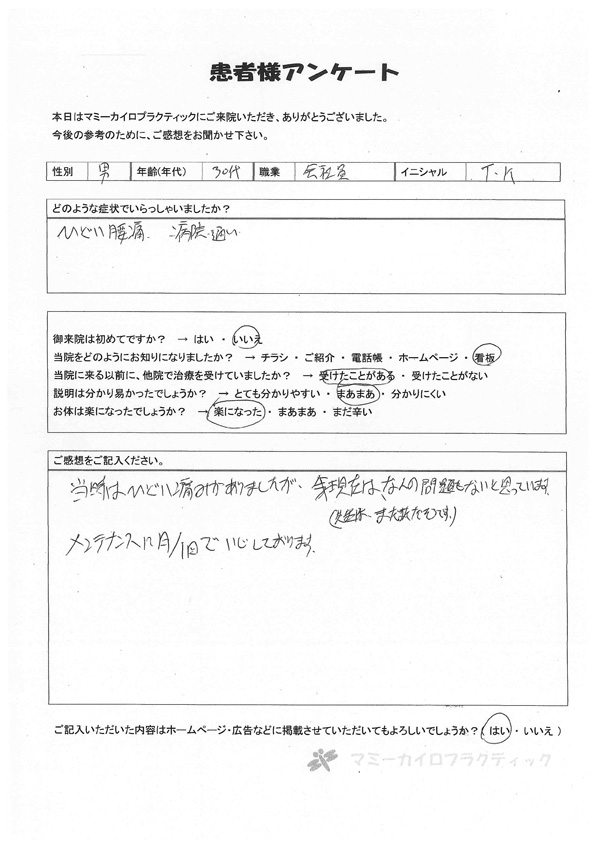 患者様アンケート
本日はマミーカイロプラクティックにご来院いただき、ありがとうございました。
今後の参考のために、ご感想をお聞かせ下さい。
性別 男 年齢(年代) 30代 職業 会社員 イニシャル T・K
どのような症状でいらっしゃいましたか?
ひどい腰痛 病院通い
御来院は初めてですか? → はい ・ いいえ
当院をどのようにお知りになりましたか? → チラシ ・ ご紹介 ・ 電話帳 ・ ホームページ ・ 看板
当院に来る以前に、他院で治療を受けていましたか? → 受けたことがある ・ 受けたことがない
説明は分かり易かったでしょうか? → とても分かりやすい ・ まあまあ ・ 分かりにくい
お体は楽になったでしょうか? → 楽になった ・ まあまあ ・ まだ辛い
ご感想をご記入ください。
当時はひどい痛みがありましたが、現在は、なんの問題もないと思っています。
メンテナンスに月/1回でいじしております。
ご記入いただいた内容はホームページ・広告などに掲載させていただいてもよろしいでしょうか?( はい ・ いいえ )
マミーカイロプラクティック